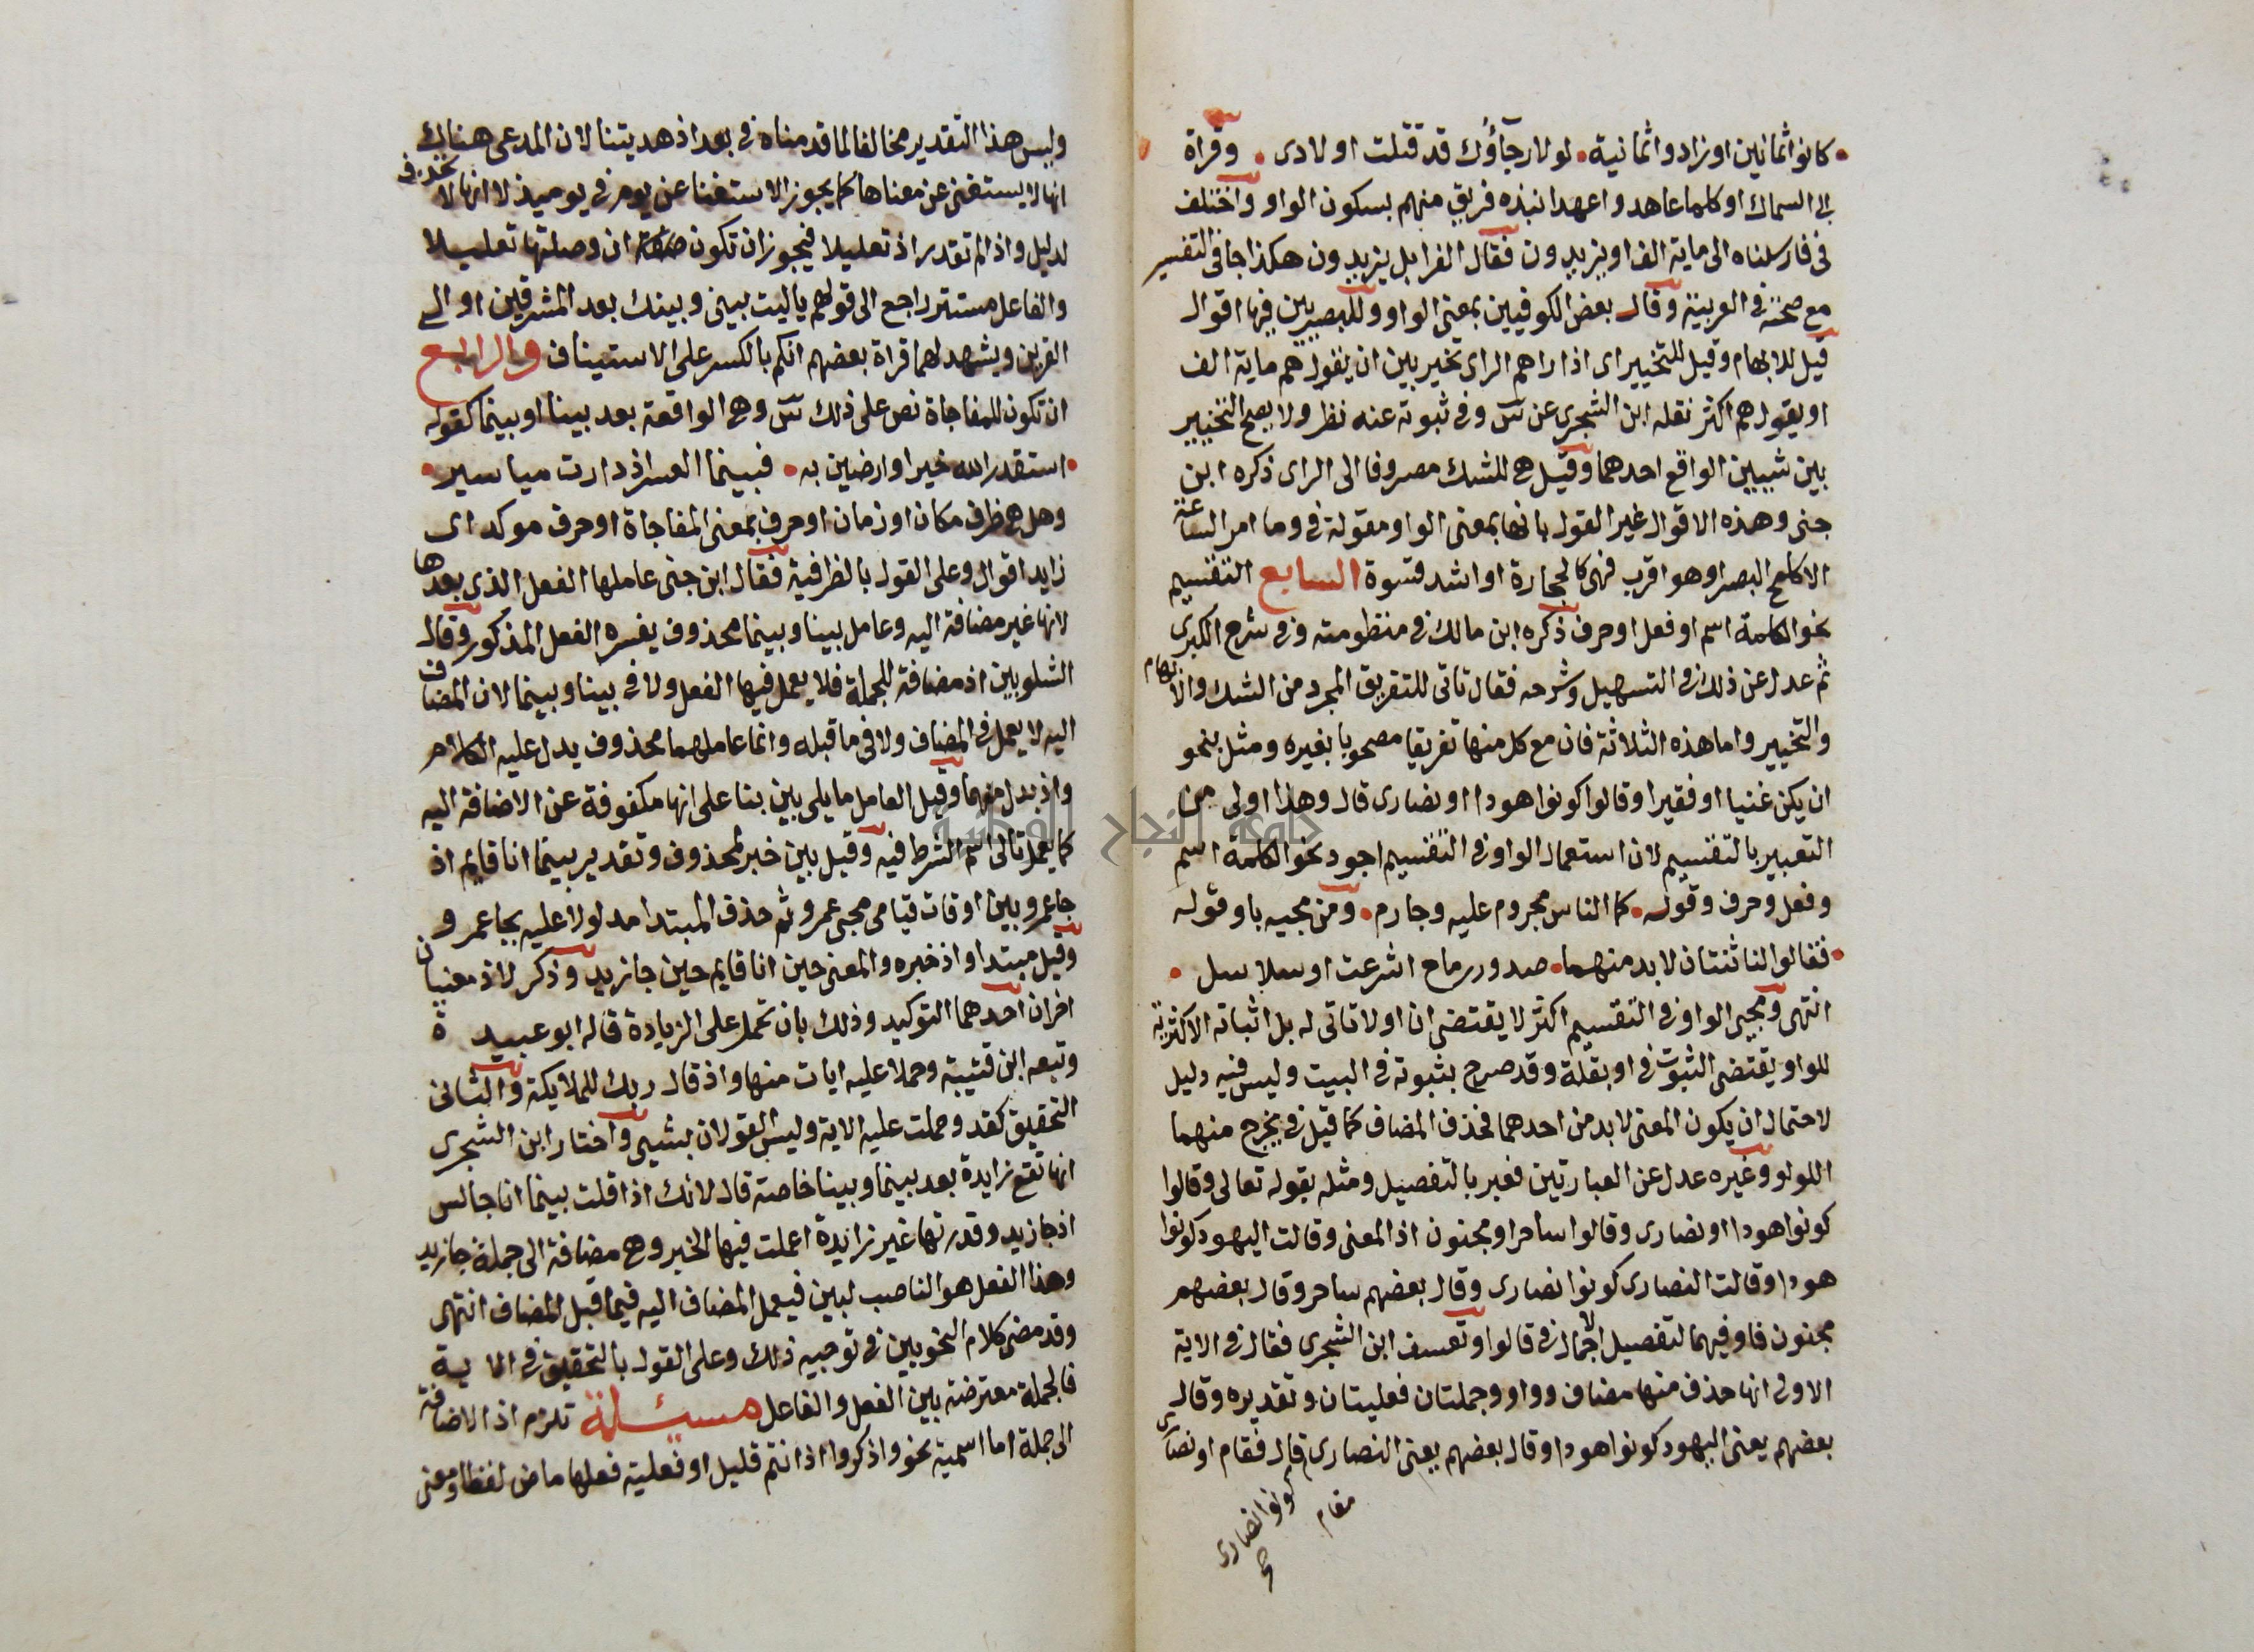 كانوا ثمانين او زادوا ثمانية لولا رجاؤك قد قتلت اولادى وقراة
ابى السماك او كلما عاهدوا عهدا نبذه فريق منهم بسكون الواو واختلف
فى فارسلناه الى ماية الف او يزيدون فقال الفرا بل يزيدون هكذا جا فى التفسير
مع صحته فى العربية وقال بعض الكوفيين بمعنى الواو وللبصريين فيها اقوال
قيل للابهام وقيل للتخيير اى اذا راهم الراى تخير بين ان يقول هم ماية الف
او يقول هم اكثر نقله ابن الشجرى عن س وفى ثبوته عنه نظر ولا يصح التخيير
بين شيين الواقع احدهما وقيل هى للشك مصروفا الى الراى ذكره ابن
جنى وهذه الاقوال غير القول بانها بمعنى الواو مقولة فى وما امر الساعة
الا كلمح البصر او هو اقرب فهى كالحجارة او اشد قسوة السابع التقسيم
نحو الكلمة اسم او فعل او حرف ذكره ابن مالك فى منظومته وفى شرح الكبرى
ثم عدل عن ذلك فى التسهيل وشرحه فقال تاتى للتفريق المجرد من الشك والابهام
والتخيير واما هذه الثلاثة فان مع كل منها تفريقا مصحوبا بغيره ومثل بنحو
ان يكن غنيا او فقيرا وقالوا كونوا هودا او نصارى قال وهذا اولى من
التعبير بالتقسيم لان استعمال الواو فى التقسيم اجود نحو الكلمة اسم
وفعل وحرف وقوله كما الناس مجروم عليه وجارم ومن مجيه باو قوله
فقالوا لنا ثنتان لا بد منهما صدور رماح اشرعت او سلاسل
انتهى ومجيى الواو فى التقسيم اكثر لا يقتضى ان او لا تاتى له بل اثباته الاكثرية
للواو يقتضى الثبوت فى او بقلة وقد صرح بثبوته فى البيت وليس فيه دليل
لاحتمال ان يكون المعنى لا بد من احدهما فحذف المضاف كما قيل فى يخرج منهما
اللولو وغيره عدل عن العبارتين فعبر بالتفصيل ومثله بقوله تعالى وقالوا
كونوا هودا او نصارى وقالوا ساحر او مجنون اذ المعنى وقالت اليهود كونوا
هودا وقالت النصارى كونوا نصارى وقال بعضهم ساحر وقال بعضهم
مجنون فاو فيهما لتفصيل الاجمال فى قالوا وتعسف ابن الشجرى فقال فى الاية
الاولى انها حذف منها مضاف وواو وجملتان فعليتان وتقديره وقال
بعضهم يعنى اليهود كونوا هودا وقال بعضهم يعنى النصارى قال فقام او نصارى
كونوا نصارى صح
مقام
وليس هذا التقدير مخالفا لما قدمناه فى بعد اذ هديتنا لان المدعى هناك
انها لا يستغنى عن معناها كما يجوز الاستغنا عن يوم فى يوميذ لا انها لا تحذف
لدليل واذا لم تقدر اذ تعليلا فيجوز ان تكون ان وصلتها تعليلا
والفاعل مستتر راجع الى قولهم ياليت بينى وبينك بعد المشرقين او الى
القرين ويشهد لهما قراة بعضهم انكم بالكسر على الاستيناف والرابع
ان تكون للمفاجاة نص على ذلك س وهى الواقعة بعد بينا او بينما كقوله
استقدر الله خيرا وارضين به فبينما العسر اذ دارت مياسير
وهل هى ظرف مكان او زمان او حرف بمعنى المفاجاة او حرف موكد اى
زايد اقوال وعلى القول بالظرفية فقال ابن جنى عاملها الفعل الذى بعدها
لانها غير مضافة اليه وعامل بينا وبينما محذوف يفسره الفعل المذكور وقال
الشلوبين اذ مضافة للجملة فلا يعمل فيها الفعل ولا فى بينا وبينما لان المضاف
اليه لا يعمل فى المضاف ولا فى ما قبله وانما عاملهما محذوف يدل عليه الكلام
واذ بدل منهما وقيل العامل ما يلى بين بنا على انها مكفوفة عن الاضافة اليه
كما يعمل تالى اسم الشرط فيه وقيل بين خبر لمحذوف وتقدير بينما انا قايم اذ
جا عمرو بين اوقات قيامى مجى عمرو ثم حذف المبتدا مدلولا عليه بجا عمرو
وقيل مبتدا واذ خبره والمعنى حين انا قايم حين جا زيد وذكر لاذ معنيان
اخران احدهما التوكيد وذلك بان تحمل على الزيادة قاله ابو عبيدة
وتبعه ابن قتيبة وحملا عليه ايات منها واذ قال ربك للملايكة والثانى
التحقيق كقد وحملت عليه الاية وليس القولان بشيى واختار ابن الشجرى
انها تقع زايدة بعد بينما وبينا خاصة قال لانك اذا قلت بينما انا جالس
اذ جا زيد وقدرتها غير زايدة اعملت فيها الخبر وهى مضافة الى جملة جا زيد
وهذا الفعل هو الناصب لبين فيعمل المضاف اليه فيما قبل المضاف انتهى
وقد مضى كلام النحويين فى توجيه ذلك وعلى القول بالتحقيق فى الاية
فالجملة معترضة بين الفعل والفاعل مسيلة تلزم اذ الاضافة
الى جملة اما اسمية نحو واذكروا اذ انتم قليل او فعلية فعلها ماض لفظا ومعنى
جامعة النجاح الوطنية